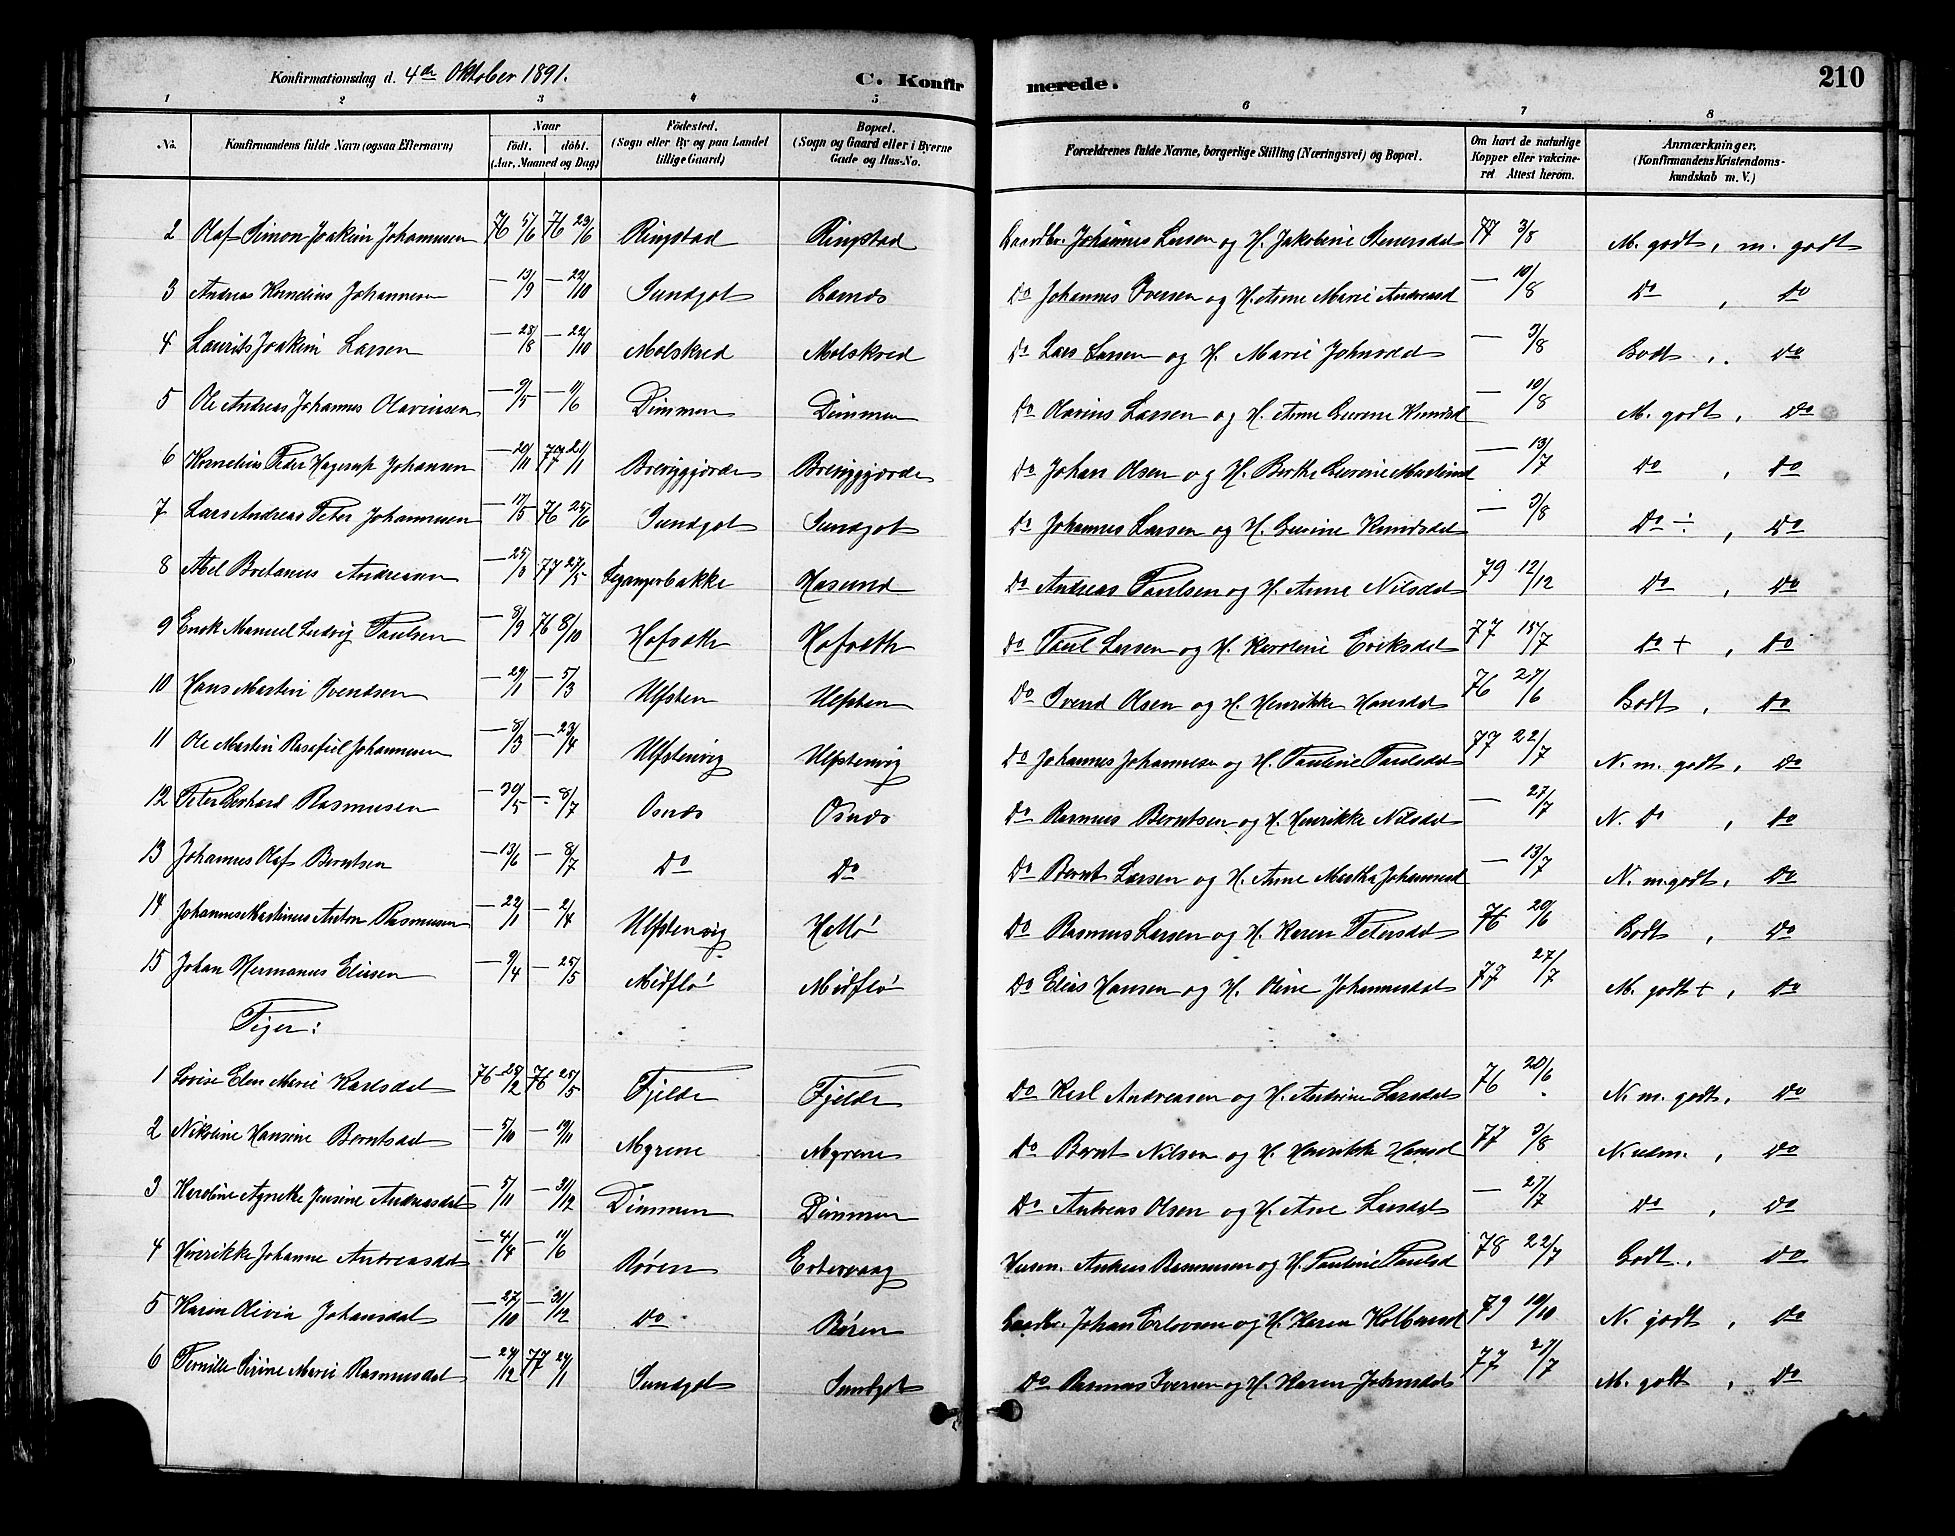 Konfirmationsdag d. 4de Oktober 1891.
C. Konfirmerede.
210
1 2 3 4 5 6 7 8
No. Konfirmandens fulde Navn (ogsaa Efternavn) Naar født. døbt. (Aar, Maaned og Dag) Fødested. (Sogn eller By og paa Landet tillige Gaard) Bopæl. (Sogn og Gaard eller i Byerne Gade og Hus-No. Forældrenes fulde Navne, borgerlige Stilling (Næringsvei) og Bopæl. Om havt de naturlige Kopper eller vakcineret Attest herom. Anmærkninger. (Konfirmandens Kristendomskundskab m. V.)
2 Olaf Simon Joakim Johannesen 76 5/6 76 23/6 Ringstad Ringstad Gaardbr. Johannes Larsen og H. Jakobine Steuersdat 77 3/8 M. godt, m. godt
3 Andreas Kornelius Johannesen — 13/9 — 22/10 Sundgot Botnæs Do Johannes Iversen og H. Anne Marie Andreasd — 10/8 Do, Do
4 Laurits Joakim Larsen — 28/8 — 22/10 Molskred Molskred Do Lars Larsen og H. Marie Johnsdd — 3/8 Godt, Do
5 Ole Andreas Johannes Olavinsen — 9/5 — 11/6 Dimmen Dimmen Do Olavius Larsen og H. Anne Gurine Knudsd — 10/8 M. godt, Do
6 Kornelius Peder Hagerup Johansen — 20/11 77 21/1 Breviggjerde Breviggjerde Do Johan Olsen og H. Berthe Gurine — 13/7 Do, Do
7 Lars Andreas Peter Johannesen — 17/5 76 25/6 Sundgot Sundgot Do Johannes Larsen og H. Gurine Knudsdat — 3/8 Do ÷, Do
8 Abel Bretanus Andreasen — 25/3 77 27/5 Leganger bakke Hasund Do Andreas Paulsen og H. Anne Nilsdat 79 12/12 Do, Do
9 Enok Manuel Ludvig Paulsen — 8/9 76 8/10 Hofseth Hofseth Do Paul Larsen og H. Karoline Eriksdat 77 15/7 Do +, Do
10 Hans Martin Svendsen — 29/1 — 5/3 Ulfsten Ulfsten Do Svend Olsen og H. Henrikke Hansdat 76 27/6 Godt, Do
11 Ole Martin Rasafiel Johannesen — 8/3 — 23/4 Ulfstenvig Ulfstenvig Do Johannes Johannesen og H. Pauline Paulsdat 77 22/7 N. m. godt, Do
12 Peter Gerhard Rasmusen — 30/5 — 8/7 Osnæs Osnæs Do Rasmus Berntsen og H. Henrikke Nilsdat — 27/7 N. Do, Do
13 Johannes Olaf Berntsen — 13/6 — 8/7 Do Do Do Bernt Larsen og H. Anne Martha Johannesd — 13/7 N. m. godt, Do
14 Johannes Martinus Anton Rasmusen — 22/1 — 2/4 Ulfstenvig Hatlø Do Rasmus Larsen og H. Karen Petersdat 76 20/6 Godt, Do
15 Johan Hermanus Eliasen — 9/4 — 25/5 Midflø Midflø Do Elias Hansen og H. Oline Johannesdat 77 27/7 M. godt +, Do
Piger:
1 Lovise Elen Marie Karlsdat 76 28/2 76 25/5 Fjelde Fjelde Do Karl Andreasen og H. Andrine Larsdat 76 20/6 N. m. godt, Do
2 Nikoline Hansine Berntsdat — 5/10 — 19/11 Myrene Myrene Do Bernt Nilsen og H. Henrikke Hansd 77 3/8 N. udm., Do
3 Karoline Agneke Jensine Andreasdat — 5/11 — 31/12 Dimmen Dimmen Do Andreas Olsen og H. Ane Larsdat — 27/7 Do, Do
4 Henrikke Johanne Andreasdat — 4/4 — 11/6 Røren Eitervaag Husm. Andreas Rasmusen og H. Pauline Paulsd 78 22/7 Godt, Do
5 Karen Olivia Johansdat — 27/10 — 31/12 Do Røren Gaardbr. Johan Erlovsen og H. Karen Kolbensd 79 10/10 N. godt, Do
6 Pernille Sirine Marie Rasmusdat — 24/12 77 24/1 Sundgot Sundgot Do Rasmus Iversen og H. Karen Johnsdat 77 27/7 M. godt, Do